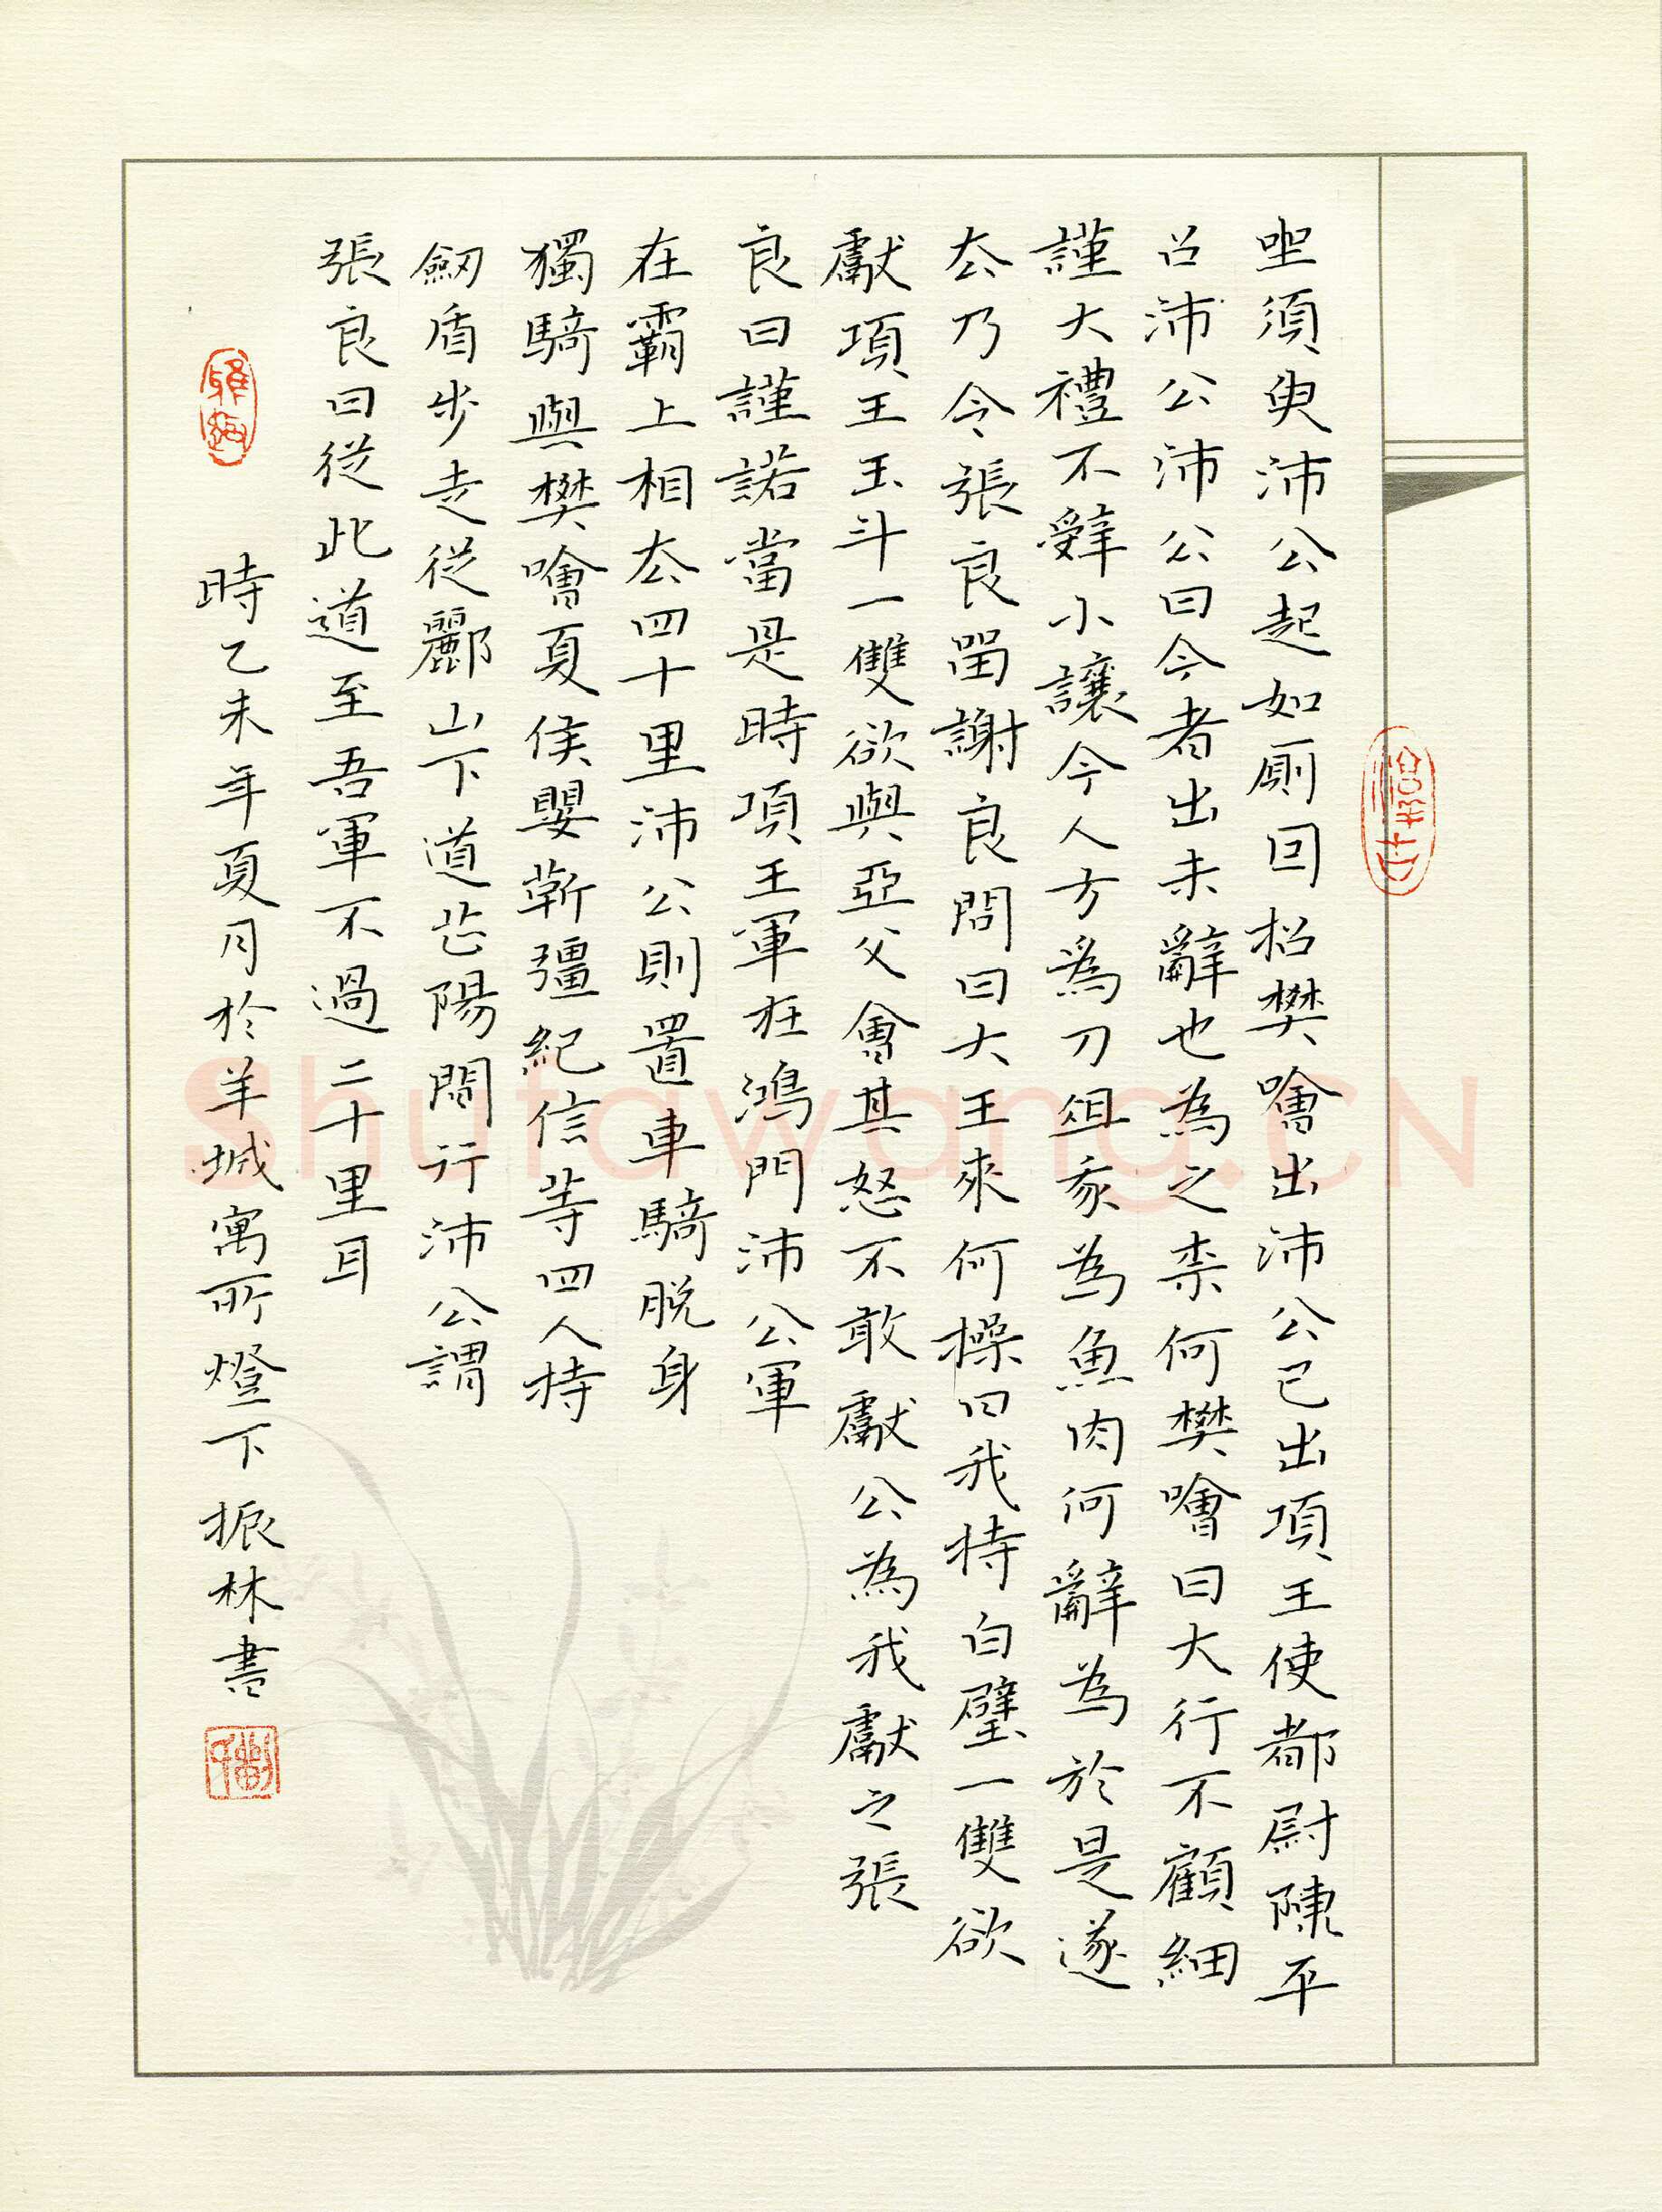 坐須臾沛公起如厠因招樊噲出沛公已出項王使都尉陳平
召沛公沛公曰今者出未辭也為之柰何樊噲曰大行不顧細
謹大禮不辤小讓今人方為刀俎我為魚肉何辭為於是遂
去乃令張良留謝良問曰大王來何操曰我持白璧一雙欲
獻項王玉斗一雙欲與亞父會其怒不敢獻公為我獻之張
良曰謹諾當是時項王軍在鴻門沛公軍
在霸上相去四十里沛公則置車騎脫身
獨騎與樊噲夏侯嬰靳彊紀信等四人持
劒盾步走從酈山下道芷陽間行沛公謂
張良曰從此道至吾軍不過二十里耳
時乙未年夏月於羊城寓所燈下振林書
Shufawang.CN